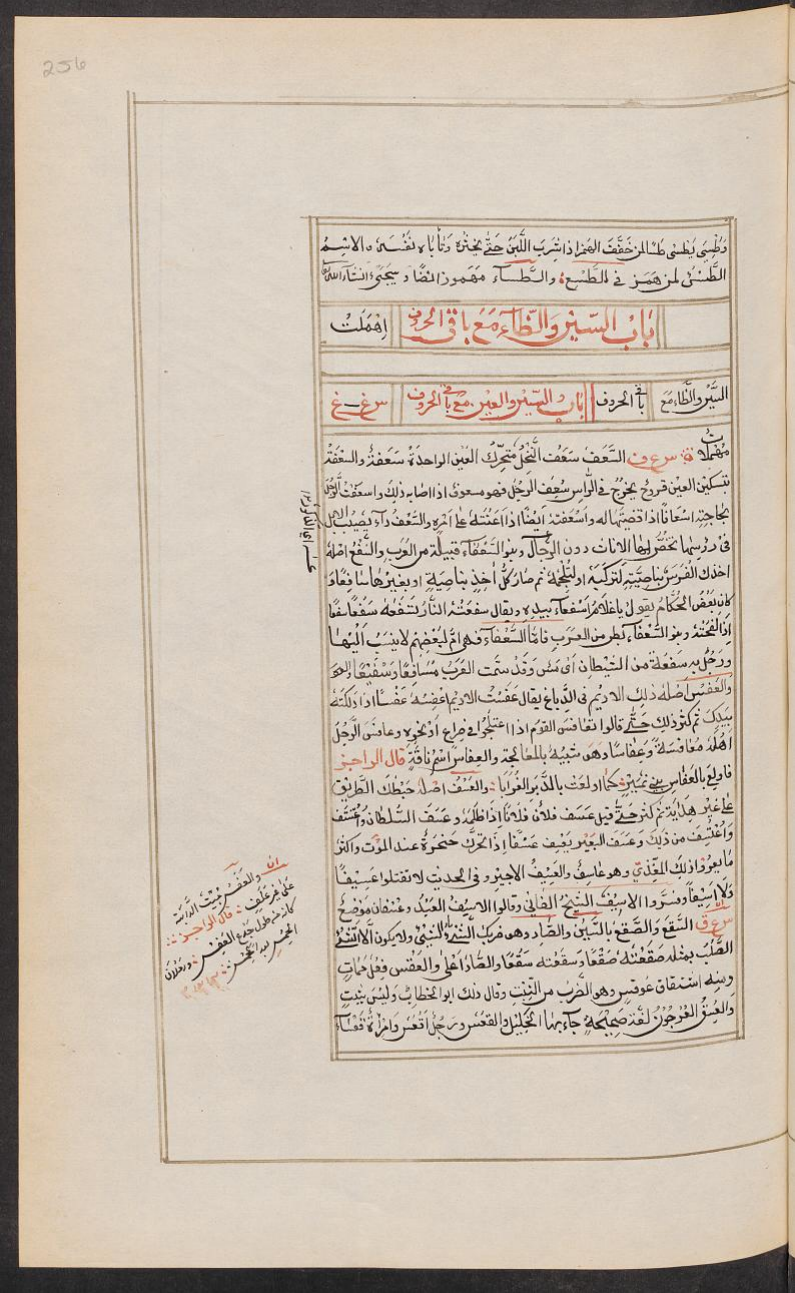 256
وطَسِيَ يَطْسَى طَسًا لمن خفّف الهمز اذا شرب اللّبن حتّى يخثره وتأباه نفسه والاسم
الطَّسْئُ لمن همز في الطسع والطساء مهموز ايضا وسيجيء انشاء الله
باب السين والظاء مع باقي الحروف اهملت
السين والظاء مع باقي الحروف باب السين والعين مع باقي الحروف س ع غ
مهملات س ع ف السَّعَف سَعَفُ النخل متحرّك العين الواحدة سَعَفة والسعْفة
بتسكين العين قروح يخرج في الراس سُعِف الرجل فهو مسعوف اذا اصابه ذلك واسعفت الرجل
بحاجته اسعافا اذا قضيتها له واسعفته ايضًا اذا اعنته على امره والسَّعَف داء يصيب الابل
في رؤسها تختص بها الاناث دون الرجال وبنو السعفاء قبيلة من العرب والسَّفْع اصله
اخذك الفرس بناصيته لتركبه او لتلجمه ثم صار كل اخذٍ بناصيةٍ او بغيرها سافعًا و
كان بعض الحكام يقول يا غلام اسفعا بيده ويقال سفعته النار تسفعه سفعًا
اذا لفحته وبنو السعفاء بطن من العرب فامّا السفعاء فهي امّ لبعضهم لا ينسب اليها
ورجل به سفعة من الشيطان اى مس وقد سمت العرب مسافعًا وسفيعًا
والعَفْس اصله دلك الاديم في الدباغ يقال عفست الاديم اعفسه عفسًا اذا دلكته
بيدك ثم كثر ذلك حتى قالوا تعافس القوم اذا اعتلجوا في صراع او نحوه وعافس الرجل
اهله معافسة وعفاسا وهو شبيه بالمعالجة والعفاس اسم ناقة قال الراجز
فاولع بالعفاس بني نمير كما اولعت بالدبر الغرابا والعسف اصله خبطك الطريق
على غير هداية ثم كثر حتى قيل عسف فلان فلانا اذا ظلمه وعسف السلطان واعتسف
واعتسف من ذلك وعسف البعير يعسف عسفًا اذا تحرّك حنجرته عند الموت واكثر
ما يعرو ذلك المغدّي وهو عاسف والعسيف الاجير وفي الحديث لا تقتلوا عسيفًا
ولا اسيفًا وفسروا الاسيف الشيخ الفاني وقالوا الاسيف العبد وعسفان موضع
س ع ق السقع والصقع بالسين والصاد وهو ضربك الشيء بالشيء ولا يكون الا الشيء
الصلب بمثله صقعته صقعًا وسقعته سقعًا والصاد اعلى والعقس فعل ممات
ومنه اشتقاق عوقس وهو الضرب من النبت وقال ذلك ابو الخطاب وليس بثبت
والعسق العرجون لغة صحيحة جاء بها الخليل والقعس ورجل اقعس وامراة قعساء
والعفس حبسك الدابة
على غير علف قال الراجز
كانه من طول جذع العفس